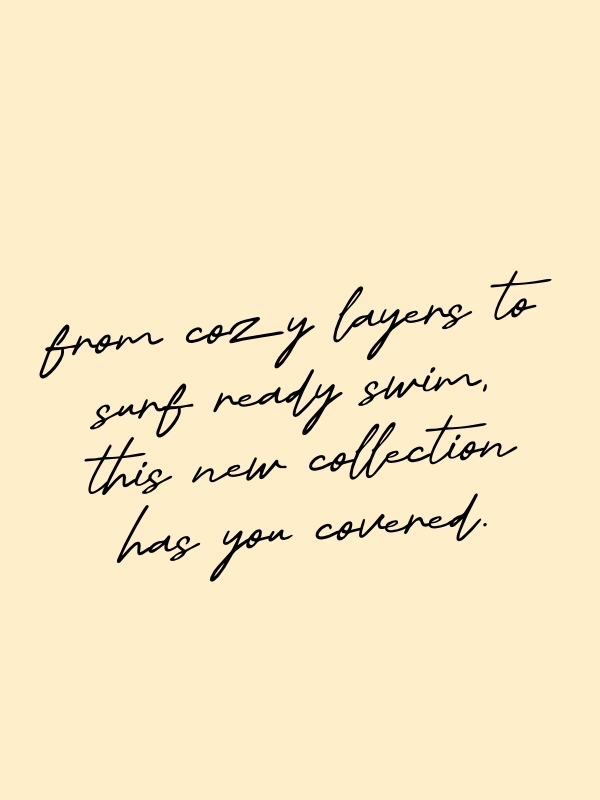 from cozy layers to
surf ready swim,
this new collection
has you covered.